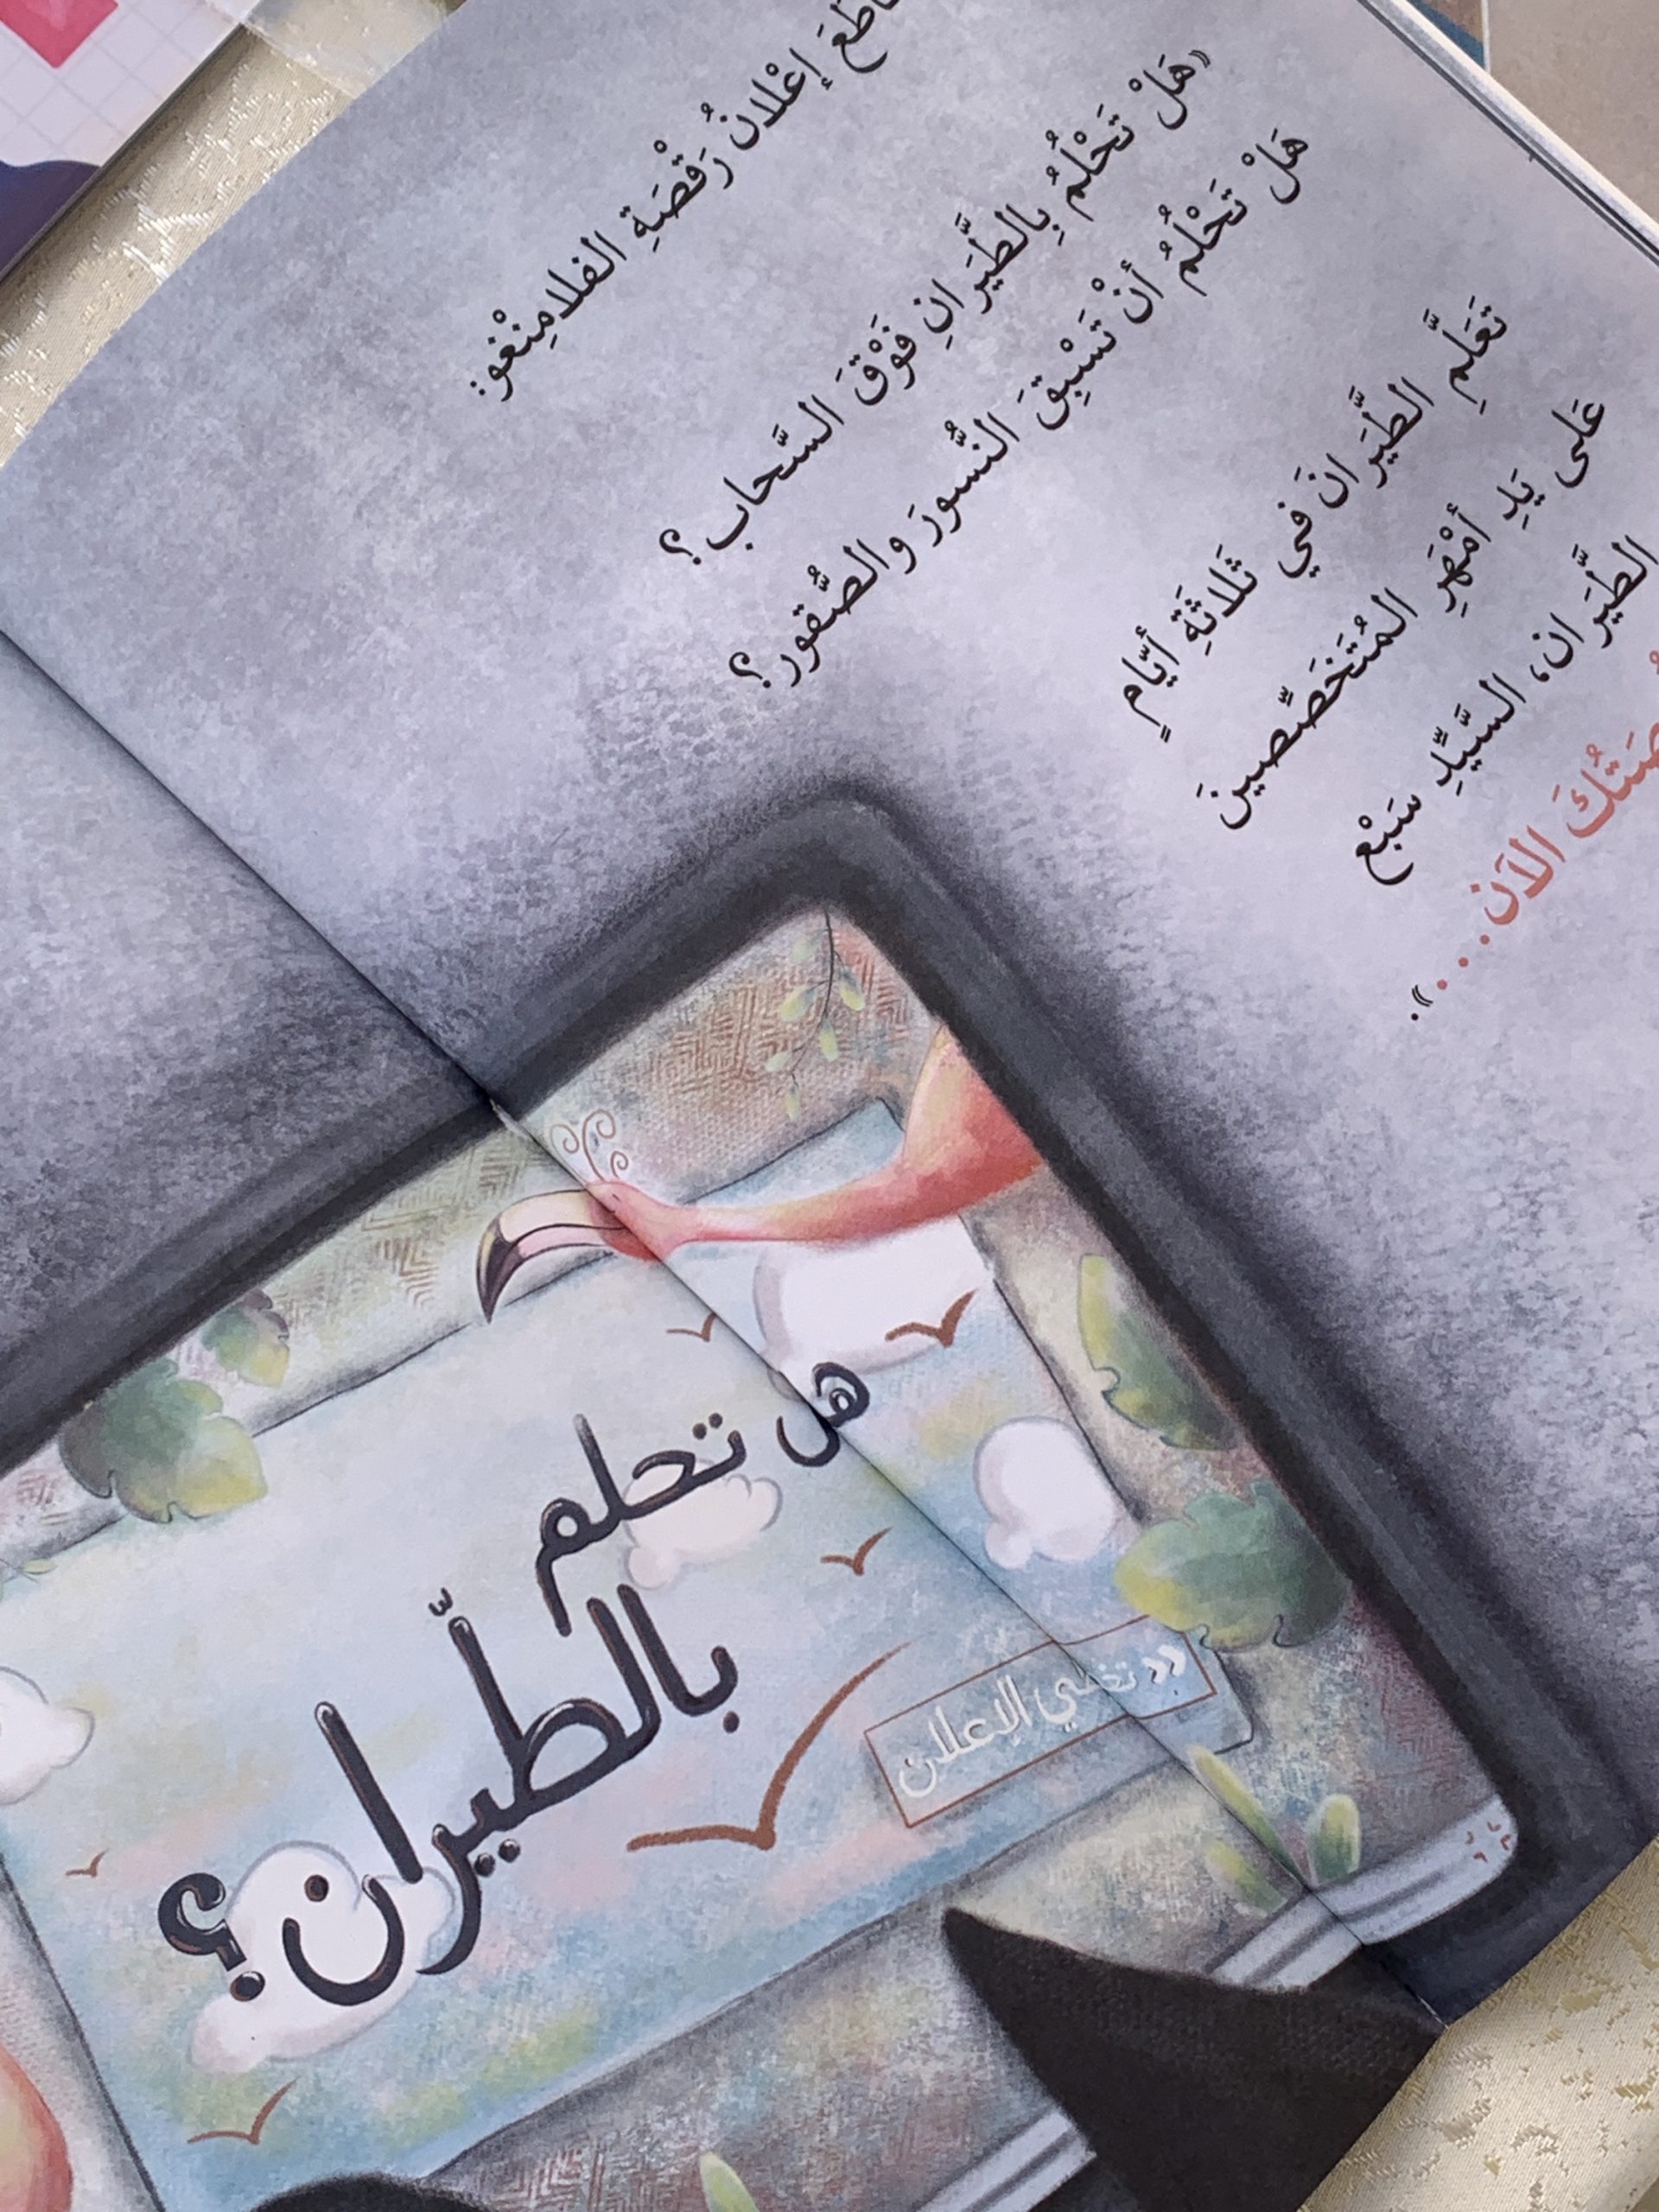 إعْلانُ رَقْصَةِ الفلامِنْغو:
«هَلْ تَحْلُمُ بِالطَّيَرانِ فَوْقَ السَّحاب؟
هَلْ تَحْلُمُ أنْ تَسْبِقَ النُّسورَ والصُّقور؟
تَعَلَّمِ الطَّيَرانَ في ثَلاثَةِ أيّامٍ
عَلى يَدِ أمْهَرِ المُتَخَصِّصينَ
الطَّيَران، السَّيِّدِ سَبْع
الآن...».
هل تحلم
بالطّيران؟
» تخطّي الإعلان